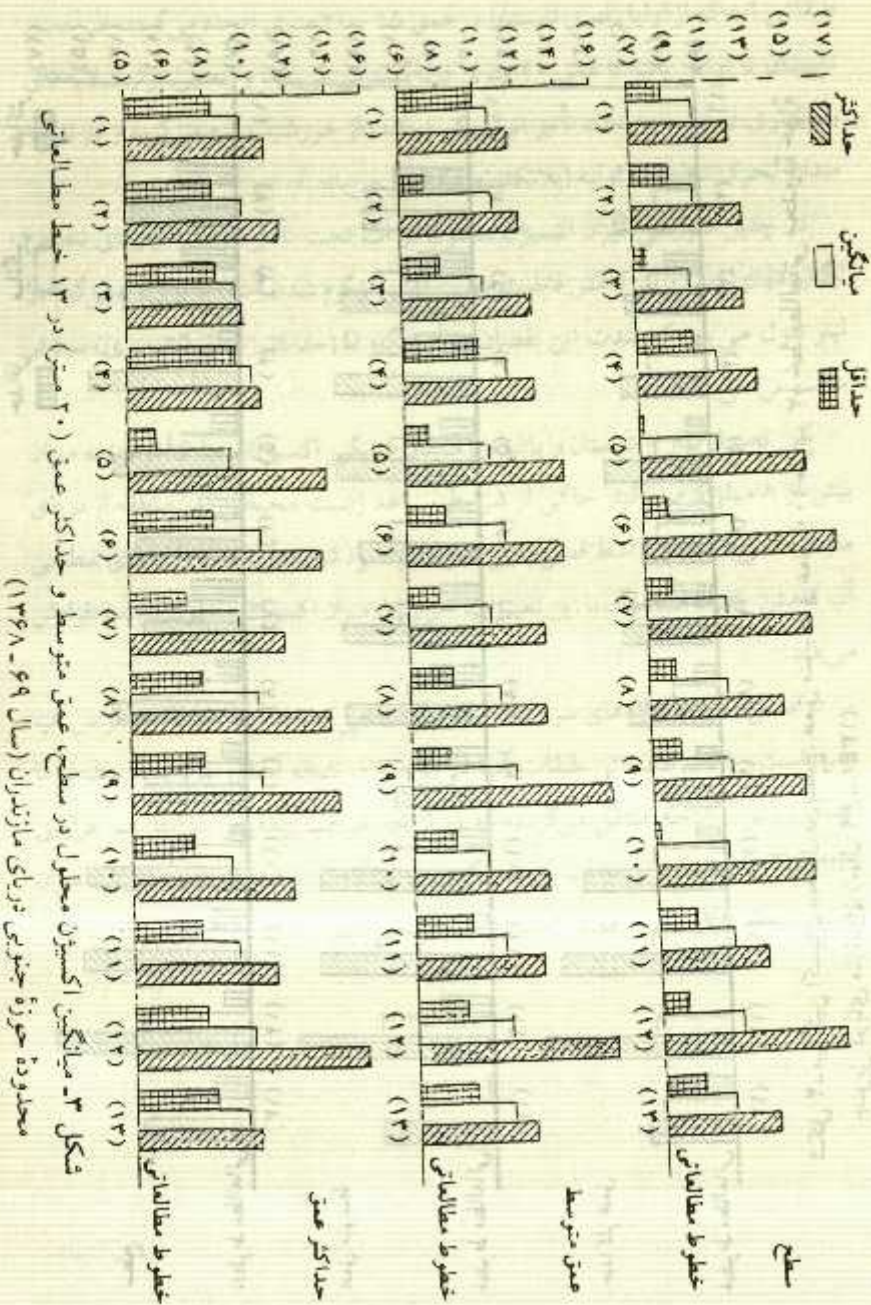 حداکثر
میانگین
حداقل
سطح
(۱۷)
(۱۵)
(۱۳)
(۱۱)
(۹)
(۷)
(۱) (۲) (۳) (۴) (۵) (۶) (۷) (۸) (۹) (۱۰) (۱۱) (۱۲) (۱۳)
خطوط مطالعاتی
عمق متوسط
(۱۶)
(۱۴)
(۱۲)
(۱۰)
(۸)
(۶)
(۱) (۲) (۳) (۴) (۵) (۶) (۷) (۸) (۹) (۱۰) (۱۱) (۱۲) (۱۳)
خطوط مطالعاتی
حداکثر عمق
(۱۶)
(۱۴)
(۱۲)
(۱۰)
(۸)
(۶)
(۵)
(۱) (۲) (۳) (۴) (۵) (۶) (۷) (۸) (۹) (۱۰) (۱۱) (۱۲) (۱۳)
خطوط مطالعاتی
شکل ۳ـ میانگین اکسیژن محلول در سطح، عمق متوسط و حداکثر عمق (۲۰ متر) در ۱۳ خط مطالعاتی
محدودهٔ حوزهٔ جنوبی دریای مازندران (سال ۶۹ ـ ۱۳۶۸)